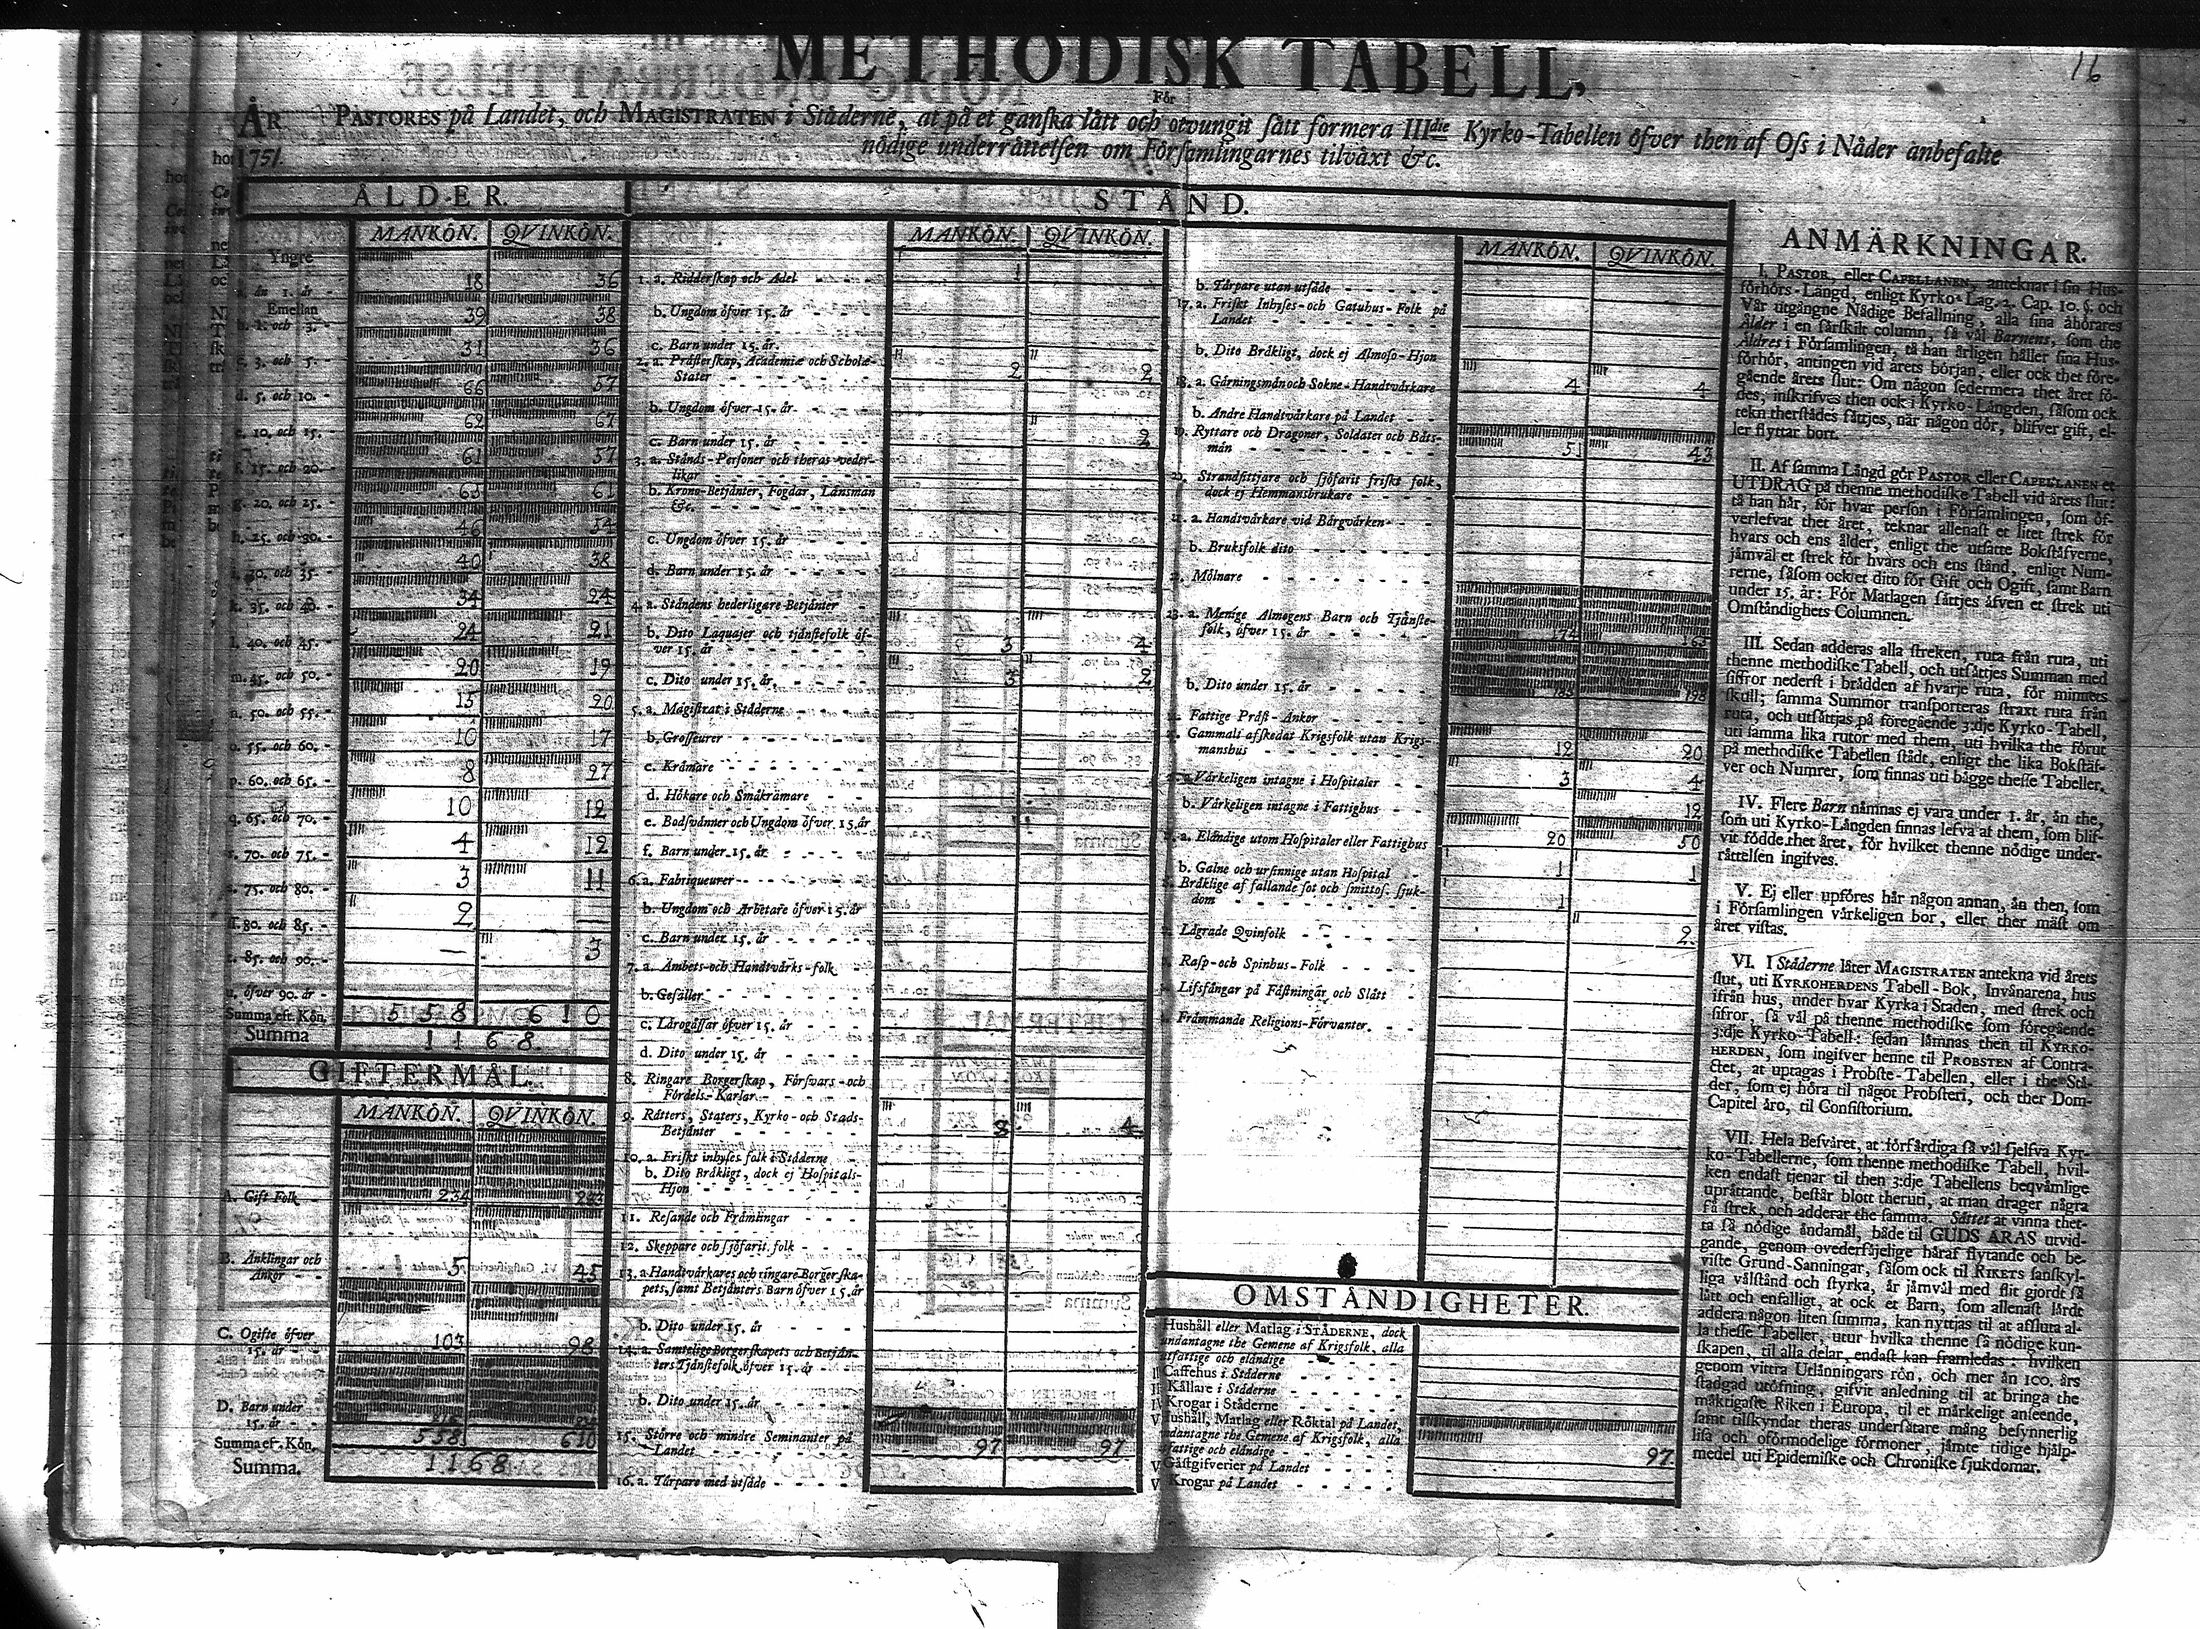 METHODISK TABELL,
16
För
ÅR PASTORES på Landet, och MAGISTRATEN i Ståderne, at på et ganska lått och otvungit sått formera IIIdie Kyrko-Tabellen öfver then af Oss i Nåder anbefalte
1751. nödige underråttelsen om Församlingarnes tilvåxt &c.
ÅLDER.
MANKÖN. QVINKÖN.
Yngre
a. ån 1. år 18 36
Emellan
b. 1. och 3. 39 38
c. 3. och 5. 31 36
d. 5. och 10. 66 57
e. 10. och 15. 62 67
f. 15. och 20. 61
g. 20. och 25. 61
h. 25. och 30. 46
i. 30. och 35. 40 38
k. 35. och 40. 34 24
l. 40. och 45. 24 21
m. 45. och 50. 20 19
n. 50. och 55. 15 20
o. 55. och 60. 10 17
p. 60. och 65. 8 27
q. 65. och 70. 10 12
r. 70. och 75. 4 12
s. 75. och 80. 3 11
ſ. 80. och 85. 2
t. 85. och 90. — 3
u. öfver 90. år
Summa eft. Kön. 558 610
Summa 1168.
GIFTERMÅL.
MANKÖN. QVINKÖN.
A. Gift Folk 234
B. Anklingar och
Ånkor 5 45
C. Ogifte öfver
15. år 103 98
D. Barn under
15. år
Summa ef. Kön. 558 610
Summa. 1168
STÅND.
MANKÖN. QVINKÖN.
1. a. Ridderskap och Adel 1
b. Ungdom öfver 15. år
c. Barn under 15. år.
2. a. Prästerskap, Academiæ och Scholæ-
Stater 2 2
b. Ungdom öfver 15. år
c. Barn under 15. år 2
3. a. Stånds-Personer och theras veder-
likar
b. Krono-Betjånter, Fogdar, Lånsmån
&c.
c. Ungdom öfver 15. år
d. Barn under 15. år
4. a. Ståndens hederligare Betjånter
b. Dito Laquajer och tjånstefolk öf-
ver 15. år 3 4
c. Dito under 15. år. 3 2
5. a. Magistrat i Ståderne
b. Grosseurer
c. Kråmare
d. Hökare och Småkrämare
e. Bodsvånner och Ungdom öfver 15. år
f. Barn under 15. år
6. a. Fabriqueurer
b. Ungdom och Arbetare öfver 15. år
c. Barn under 15. år
7. a. Åmbets- och Handtvårks-folk
b. Gesåller
c. Lårogåssar öfver 15. år
d. Dito under 15. år
8. Ringare Borgerskap, Försvars- och
Fördels-Karlar
9. Råtters, Staters, Kyrko- och Stads-
Betjånter 4
10. a. Friskt inhyses folk i Ståderne
b. Dito Bråkligt, dock ej Hospitals-
Hjon
11. Resande och Fråmlingar
12. Skeppare och sjöfarit folk
13. a. Handtvårkares och ringare Borgerska-
pets, samt Betjånters Barn öfver 15. år
b. Dito under 15. år
14. a. Samtelige Borgerskapets och Betjån-
ters Tjånstefolk öfver 15. år
b. Dito under 15. år
15. Större och mindre Seminanter på
Landet 97 97
16. a. Torpare med utsåde
MANKÖN. QVINKÖN.
b. Torpare utan utsåde
17. a. Friskt Inhyses- och Gatuhus-Folk på
Landet
b. Dito Bråkligt, dock ej Almoso-Hjon
18. a. Gårningsmån och Sokne-Handtvårkare 4 4
b. Andre Handtvårkare på Landet
19. Ryttare och Dragoner, Soldater och Båts-
mån 51 43
Strandsittjare och sjöfarit friskt folk,
dock ej Hemmansbrukare
a. Handtvårkare vid Bårgvårken
b. Bruksfolk dito
Mölnare
23. a. Menige Almogens Barn och Tjånste-
folk, öfver 15. år 174 163
b. Dito under 15. år 198
Fattige Pråst-Ånkor
Gammalt afskedat Krigsfolk utan Krigs-
manshus 12 20
a. Vårkeligen intagne i Hospitaler 3 4
b. Vårkeligen intagne i Fattighus 12
a. Elåndige utom Hospitaler eller Fattighus 20 50
b. Galne och ursinnige utan Hospital 1 1
Bråklige af fallande sot och smittos. sjuk-
dom 1
Lågrade Qvinfolk 2.
Rasp- och Spinhus-Folk
Lifsfångar på Fåstningar och Slått
Fråmmande Religions-Förvanter.
OMSTÅNDIGHETER.
Hushåll eller Matlag i STÅDERNE, dock
undantagne the Gemene af Krigsfolk, alla
utfattige och elåndige
Caffehus i Ståderne
Kållare i Ståderne
Krogar i Ståderne
Hushåll, Matlag eller Röktal på Landet,
undantagne the Gemene af Krigsfolk, alla
utfattige och elåndige 97
Gåstgifverier på Landet
V Krogar på Landet
ANMÄRKNINGAR.
I. PASTOR eller CAPELLANEN, anteknar i sin Hus-
förhörs-Långd, enligt Kyrko-Lag. 2. Cap. 10. §. och
Vår utgångne Nådige Befallning, alla sina åhörares
Ålder i en sårskilt column, så vål Barnens, som the
Åldres i Församlingen, tå han årligen håller sina Hus-
förhör, antingen vid årets början, eller ock thet före-
gående årets slut: Om någon sedermera thet året fö-
des, inskrifves then ock i Kyrko-Långden, såsom ock
tekn therstådes såttjes, når någon dör, blifver gift, el-
ler flyttar bort.
II. Af samma Långd gör PASTOR eller CAPELLANEN et
UTDRAG på thenne methodiske Tabell vid årets slut:
tå han hår, för hvar person i Församlingen, som öf-
verlefvat thet året, teknar allenast et litet strek för
hvars och ens ålder, enligt the utsatte Bokståfverne,
jåmvål et strek för hvars och ens stånd, enligt Num-
rerne, såsom ock et dito för Gift och Ogift, samt Barn
under 15. år: För Matlagen såttjes åfven et strek uti
Omståndighets Columnen.
III. Sedan adderas alla streken, ruta från ruta, uti
thenne methodiske Tabell, och utsåttjes Summan med
siffror nederst i brådden af hvarje ruta, för minnets
skull; samma Summor transporteras straxt ruta från
ruta, och utsåttjas på föregående 3:dje Kyrko-Tabell,
uti samma lika rutor med them, uti hvilka the förut
på methodiske Tabellen städt, enligt the lika Bokståf-
ver och Numrer, som finnas uti bågge thesse Tabeller.
IV. Flere Barn nåmnas ej vara under 1. år, ån the,
som uti Kyrko-Långden finnas lefva af them, som blif-
vit födde thet året, för hvilket thenne nödige under-
råttelsen ingifves.
V. Ej eller upföres hår någon annan, ån then, som
i Församlingen vårkeligen bor, eller ther måst om
året vistas.
VI. I Ståderne låter MAGISTRATEN antekna vid årets
slut, uti KYRKOHERDENS Tabell-Bok, Invånarena, hus
ifrån hus, under hvar Kyrka i Staden, med strek och
sifror, så vål på thenne methodiske som föregående
3:dje Kyrko-Tabell: sedan låmnas then til KYRKO-
HERDEN, som ingifver henne til PROBSTEN af Contra-
ctet, at uptagas i Probste-Tabellen, eller i the Stå-
der, som ej höra til något Probsteri, och ther Dom-
Capitel åro, til Consistorium.
VII. Hela Besvåret, at förfårdiga så vål sjelfva Kyr-
ko-Tabellerne, som thenne methodiske Tabell, hvil-
ken endast tjenar til then 3:dje Tabellens beqvåmlige
upråttande, består blott theruti, at man drager några
få strek, och adderar the samma. Såttet at vinna thet-
ta så nödige åndamål, både til GUDS ÅRAS utvid-
gande, genom ovedersåjelige håraf flytande och be-
viste Grund-Sanningar, såsom ock til RIKETS sanskyl-
liga vålstånd och styrka, år jåmvål med flit gjordt så
lått och enfalligt, at ock et Barn, som allenast lårdt
addera någon liten summa, kan nyttjas til at afsluta al-
la thesse Tabeller, utur hvilka thenne så nödige kun-
skapen, til alla delar, endast kan framledas: hvilken
genom vittra Utlånningars rön, och mer ån 100. års
stadgad utöfning, gifvit anledning til at bringa the
måktigaste Riken i Europa, til et mårkeligt anseende,
samt tilskyndat theras undersåtare mång besynnerlig
lisa och oförmodelige förmoner, jåmte tidige hjålp-
medel uti Epidemiske och Chroniske sjukdomar.